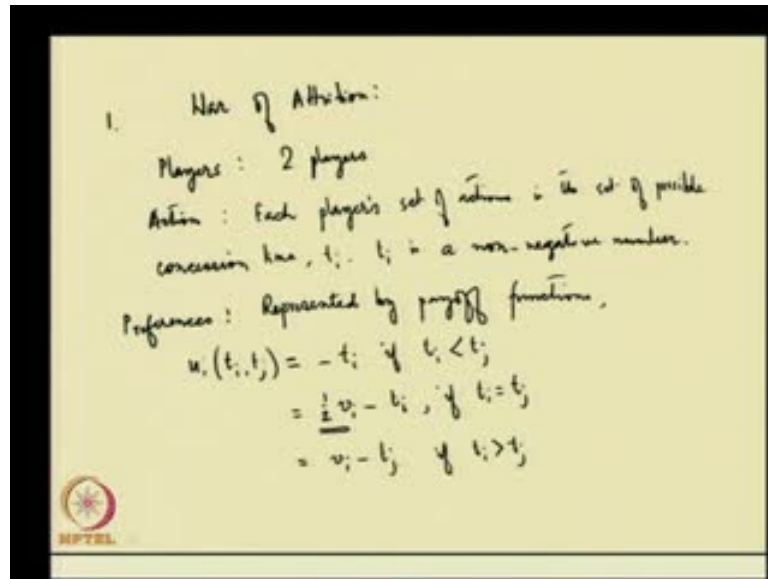 1. War of Attrition:
Players: 2 players
Action: Each player's set of actions is the set of possible
concession time, tᵢ. tᵢ is a non-negative number.
Preferences: Represented by payoff functions,
uᵢ(tᵢ, tⱼ) = -tᵢ if tᵢ < tⱼ
= ½ vᵢ - tᵢ, if tᵢ = tⱼ
= vᵢ - tⱼ if tᵢ > tⱼ
NPTEL